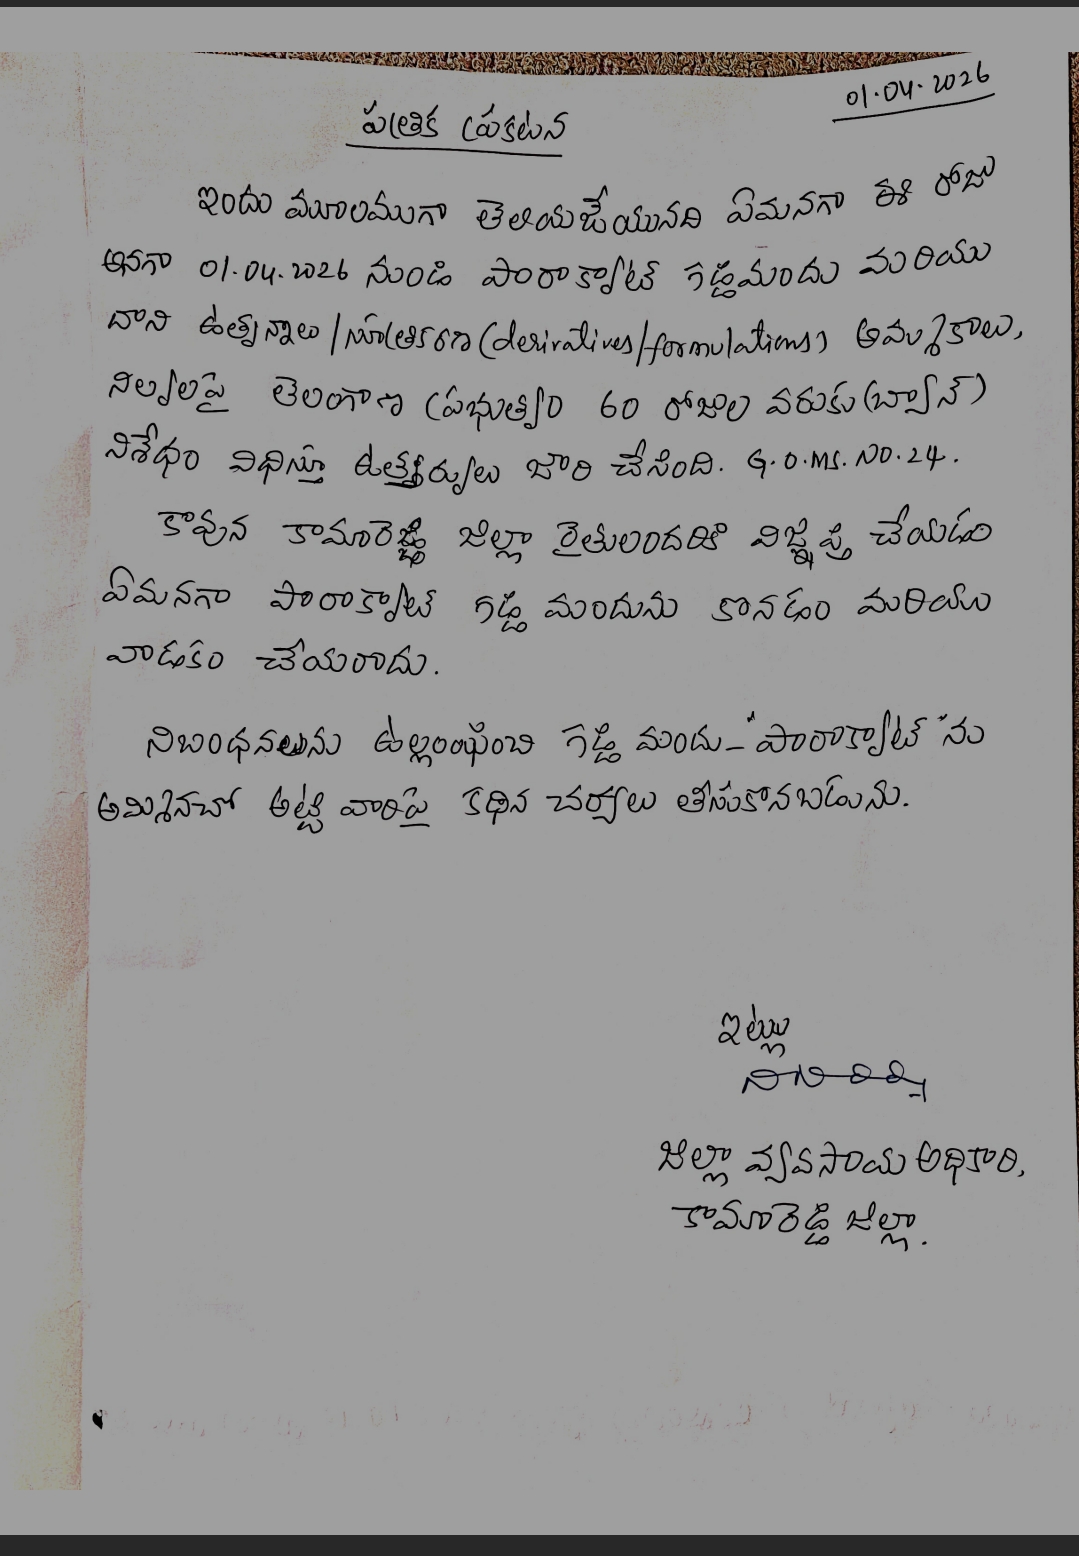 01.04.2026
పత్రిక ప్రకటన
ఇందు మూలముగా తెలియజేయునది ఏమనగా ఈ రోజు
అనగా 01.04.2026 నుండి పారాక్వాట్ గడ్డిమందు మరియు
దాని ఉత్పన్నాలు/సూత్రీకరణ (derivatives/formulations) అమ్మకాలు,
నిల్వలపై తెలంగాణ ప్రభుత్వం 60 రోజుల వరుకు (బ్యాన్)
నిశేధం విధిస్తూ ఉత్తర్వులు జారి చేసింది. G.O.MS.NO.24.
కావున కామారెడ్డి జిల్లా రైతులందరికి విజ్ఞప్తి చేయడం
ఏమనగా పారాక్వాట్ గడ్డి మందును కొనడం మరియు
వాడకం చేయరాదు.
నిబంధనలును ఉల్లంఘించి గడ్డి మందు - "పారాక్వాట్" ను
అమ్మినచో అట్టి వారిపై కఠిన చర్యలు తీసుకొనబడును.
ఇట్లు
జిల్లా వ్యవసాయ అధికారి,
కామారెడ్డి జిల్లా.